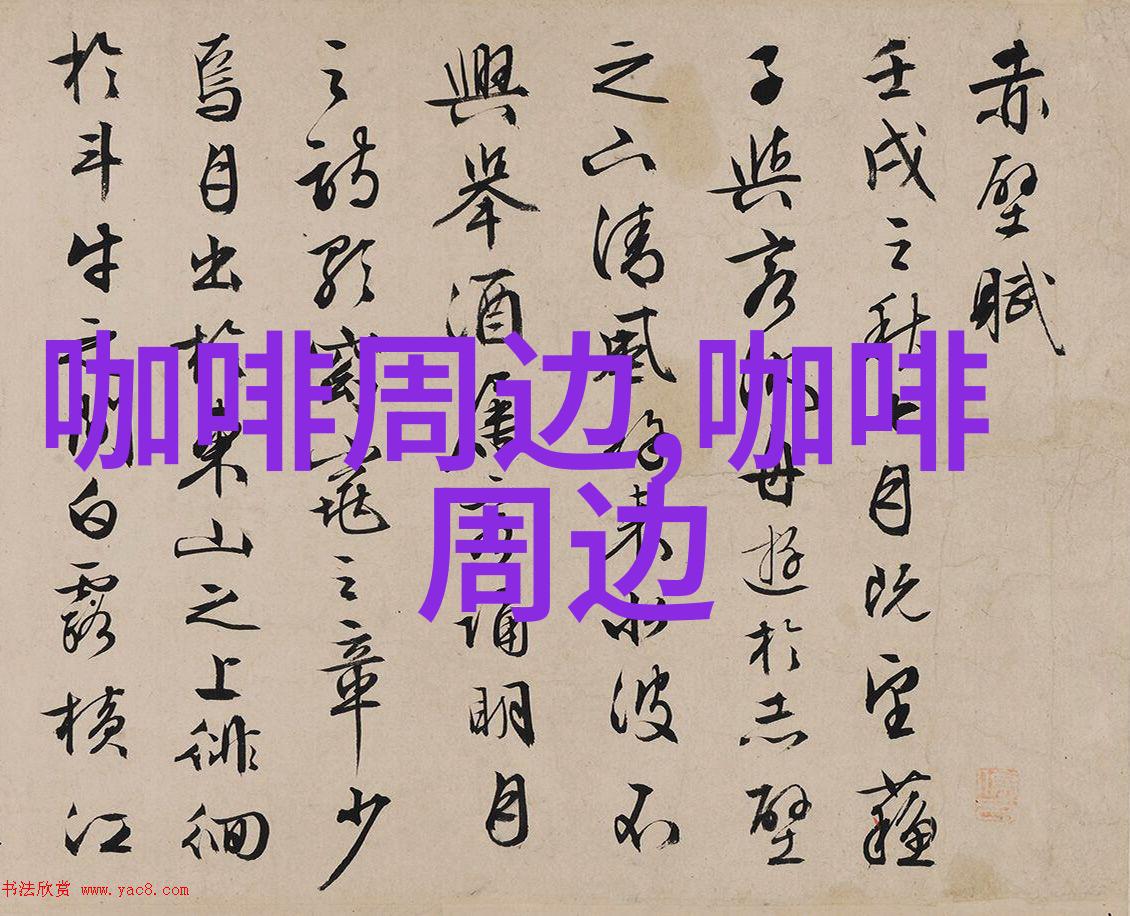 赤壁賦
壬戌之秋七月既望蘇
子與客泛舟遊於赤壁
之下清風徐來水波不
興舉酒屬客誦明月
之詩歌窈窕之章少
焉月出於東山之上徘徊
於斗牛之間白露橫江
咖啡周边,咖啡
周边
书法欣赏 www.yac8.com